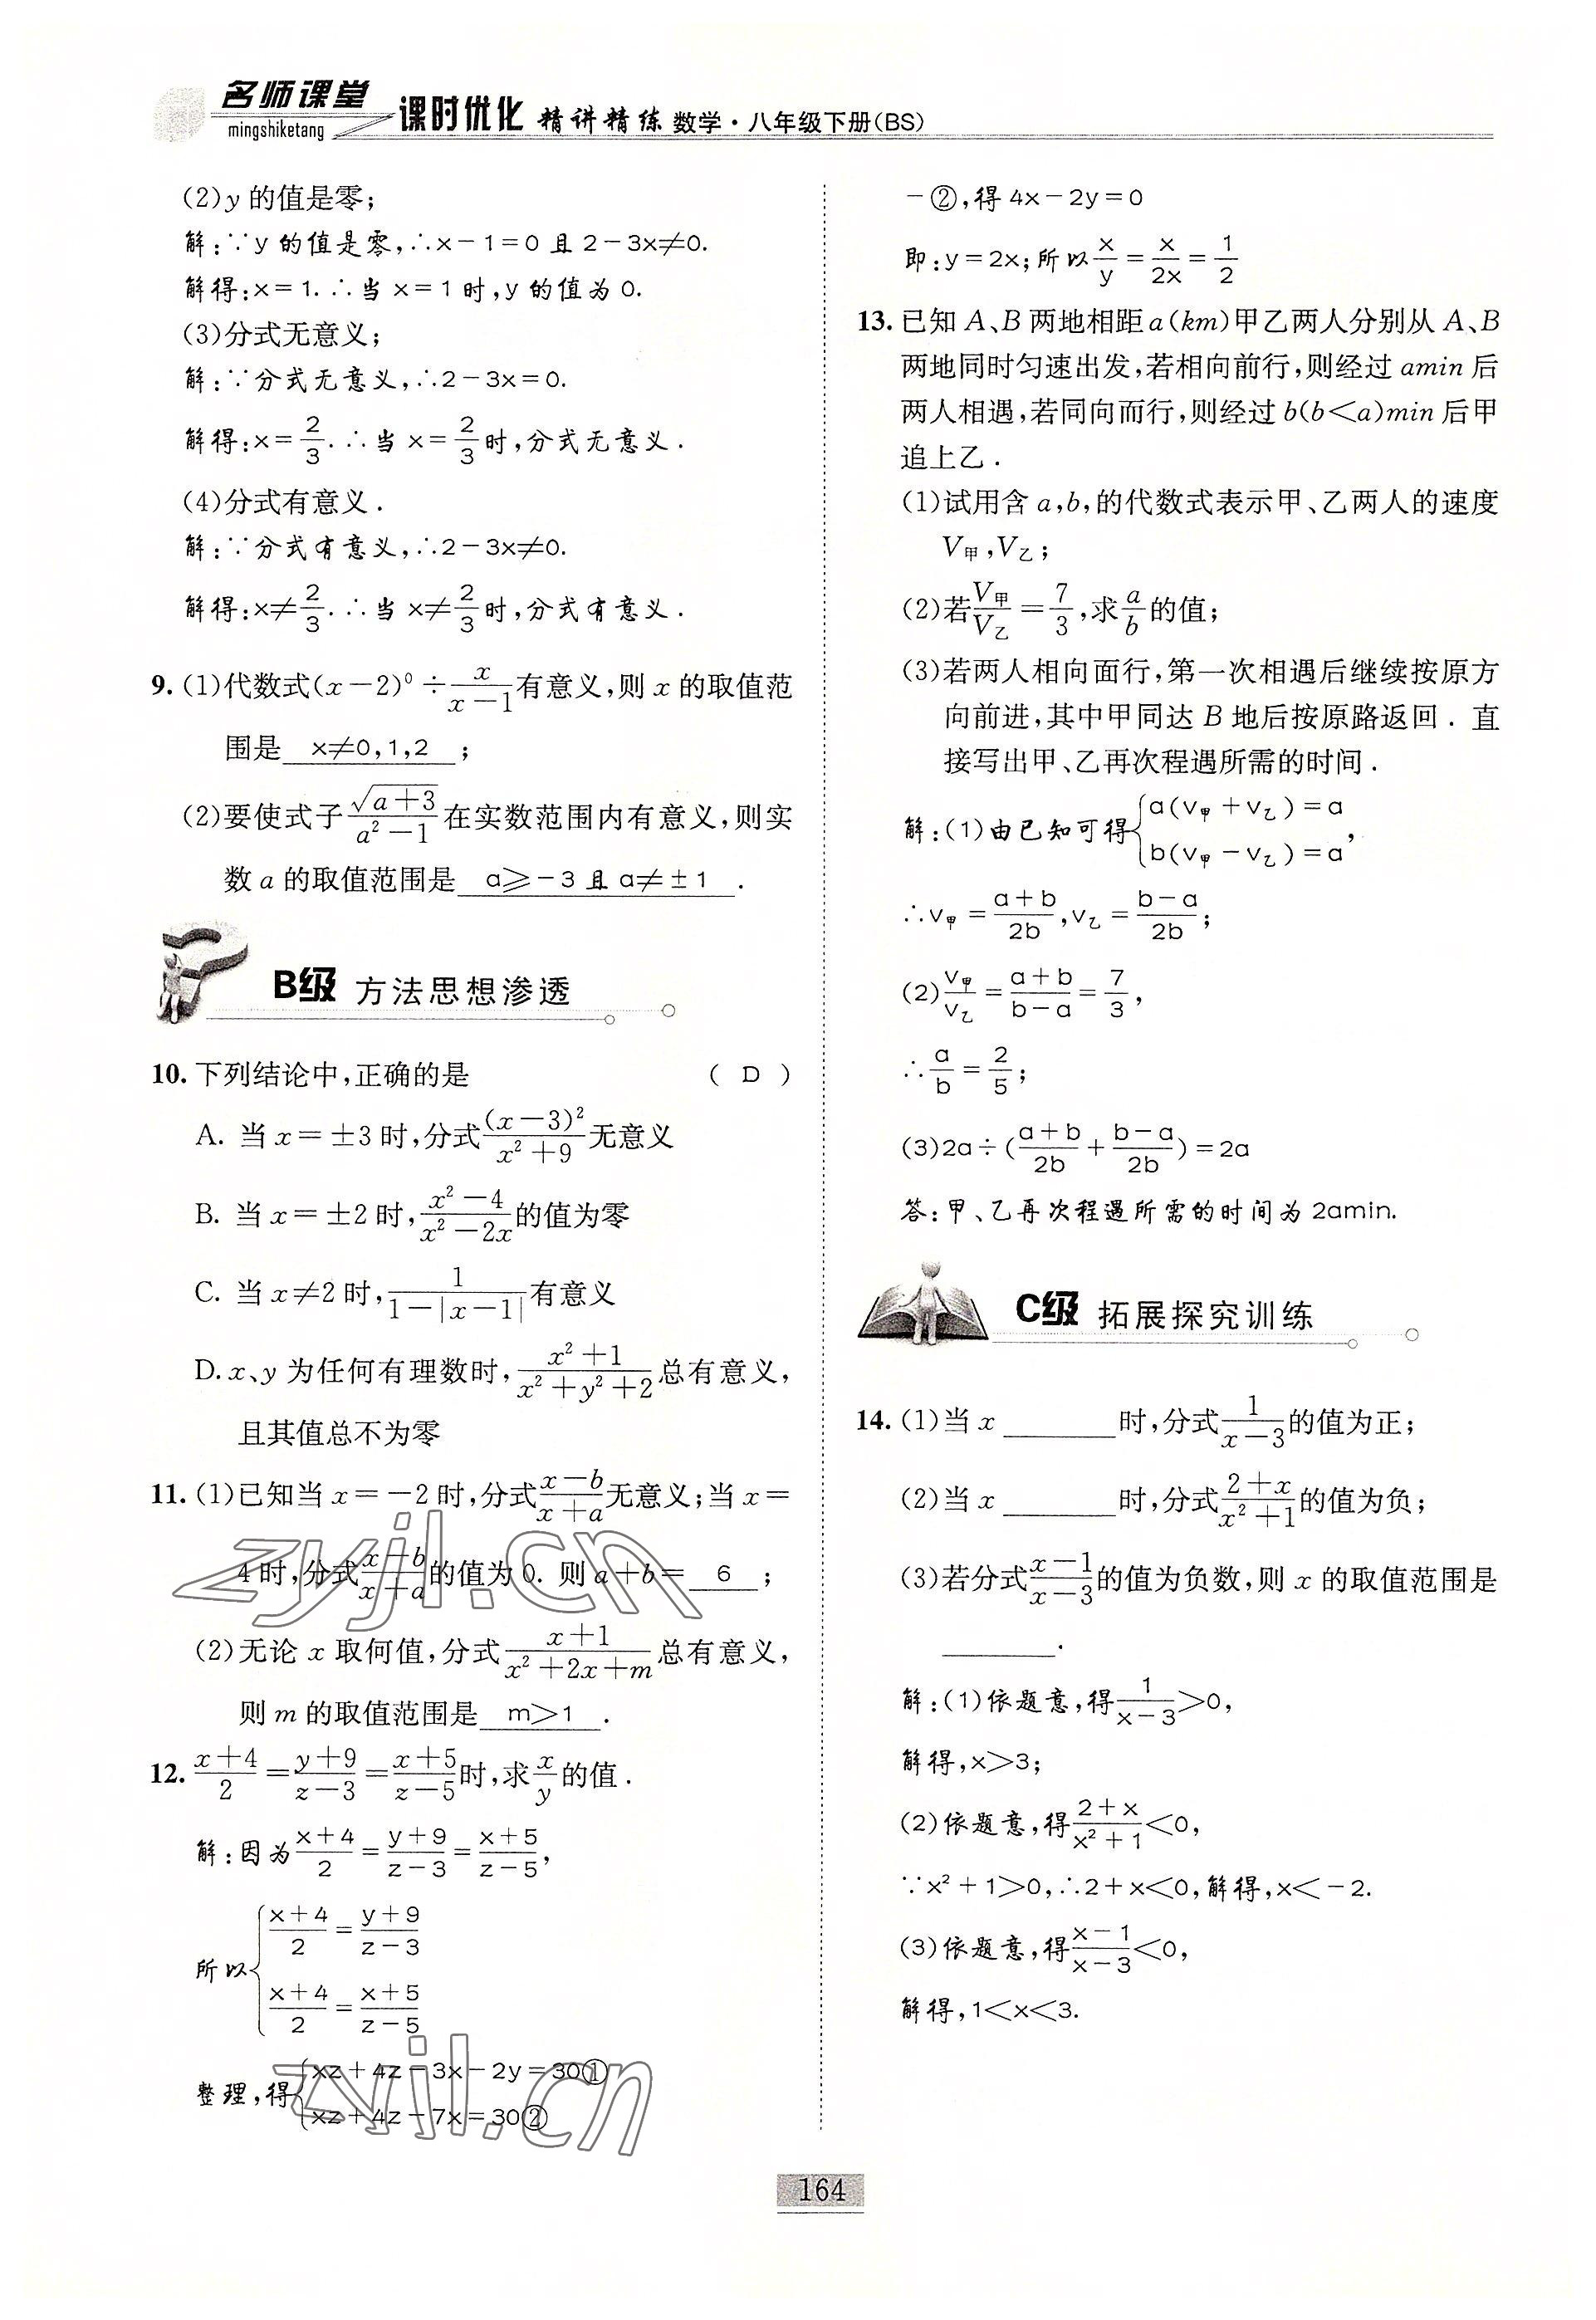 名师课堂 mingshiketang 课时优化 精讲精练 数学·八年级下册(BS)
(2)y 的值是零;
解:∵y 的值是零,∴x－1＝0 且 2－3x≠0.
解得:x＝1. ∴当 x＝1 时,y 的值为 0.
(3)分式无意义;
解:∵分式无意义,∴2－3x＝0.
解得:x＝2/3. ∴当 x＝2/3时,分式无意义.
(4)分式有意义.
解:∵分式有意义,∴2－3x≠0.
解得:x≠2/3. ∴当 x≠2/3时,分式有意义.
9. (1)代数式(x－2)⁰÷x/(x－1)有意义,则 x 的取值范
围是 x≠0,1,2 ;
(2)要使式子√(a＋3)/(a²－1)在实数范围内有意义,则实
数 a 的取值范围是 a≥－3 且 a≠±1 .
B级 方法思想渗透
10. 下列结论中,正确的是 ( D )
A. 当 x＝±3 时,分式(x－3)²/(x²＋9)无意义
B. 当 x＝±2 时,(x²－4)/(x²－2x)的值为零
C. 当 x≠2 时,1/(1－|x－1|)有意义
D. x、y 为任何有理数时,(x²＋1)/(x²＋y²＋2)总有意义,
且其值总不为零
11. (1)已知当 x＝－2 时,分式(x－b)/(x＋a)无意义;当 x＝
4 时,分式(x－b)/(x＋a)的值为 0. 则 a＋b＝ 6 ;
(2)无论 x 取何值,分式(x＋1)/(x²＋2x＋m)总有意义,
则 m 的取值范围是 m＞1 .
12. (x＋4)/2＝(y＋9)/(z－3)＝(x＋5)/(z－5)时,求x/y的值.
解:因为(x＋4)/2＝(y＋9)/(z－3)＝(x＋5)/(z－5),
所以{(x＋4)/2＝(y＋9)/(z－3)
(x＋4)/2＝(x＋5)/(z－5)
整理,得{xz＋4z－3x－2y＝30①
xz＋4z－7x＝30②
－②,得 4x－2y＝0
即:y＝2x;所以x/y＝x/2x＝1/2
13. 已知 A、B 两地相距 a(km)甲乙两人分别从 A、B
两地同时匀速出发,若相向前行,则经过 amin 后
两人相遇,若同向而行,则经过 b(b＜a)min 后甲
追上乙.
(1)试用含 a,b,的代数式表示甲、乙两人的速度
V甲,V乙;
(2)若V甲/V乙＝7/3,求a/b的值;
(3)若两人相向面行,第一次相遇后继续按原方
向前进,其中甲同达 B 地后按原路返回. 直
接写出甲、乙再次程遇所需的时间.
解:(1)由已知可得{a(v甲＋v乙)＝a
b(v甲－v乙)＝a,
∴v甲＝(a＋b)/2b,v乙＝(b－a)/2b;
(2)v甲/v乙＝(a＋b)/(b－a)＝7/3,
∴a/b＝2/5;
(3)2a÷((a＋b)/2b＋(b－a)/2b)＝2a
答:甲、乙再次程遇所需的时间为 2amin.
C级 拓展探究训练
14. (1)当 x ________时,分式1/(x－3)的值为正;
(2)当 x ________时,分式(2＋x)/(x²＋1)的值为负;
(3)若分式(x－1)/(x－3)的值为负数,则 x 的取值范围是
________.
解:(1)依题意,得1/(x－3)＞0,
解得,x＞3;
(2)依题意,得(2＋x)/(x²＋1)＜0,
∵x²＋1＞0,∴2＋x＜0,解得,x＜－2.
(3)依题意,得(x－1)/(x－3)＜0,
解得,1＜x＜3.
zyjl.cn
zyjl.cn
164